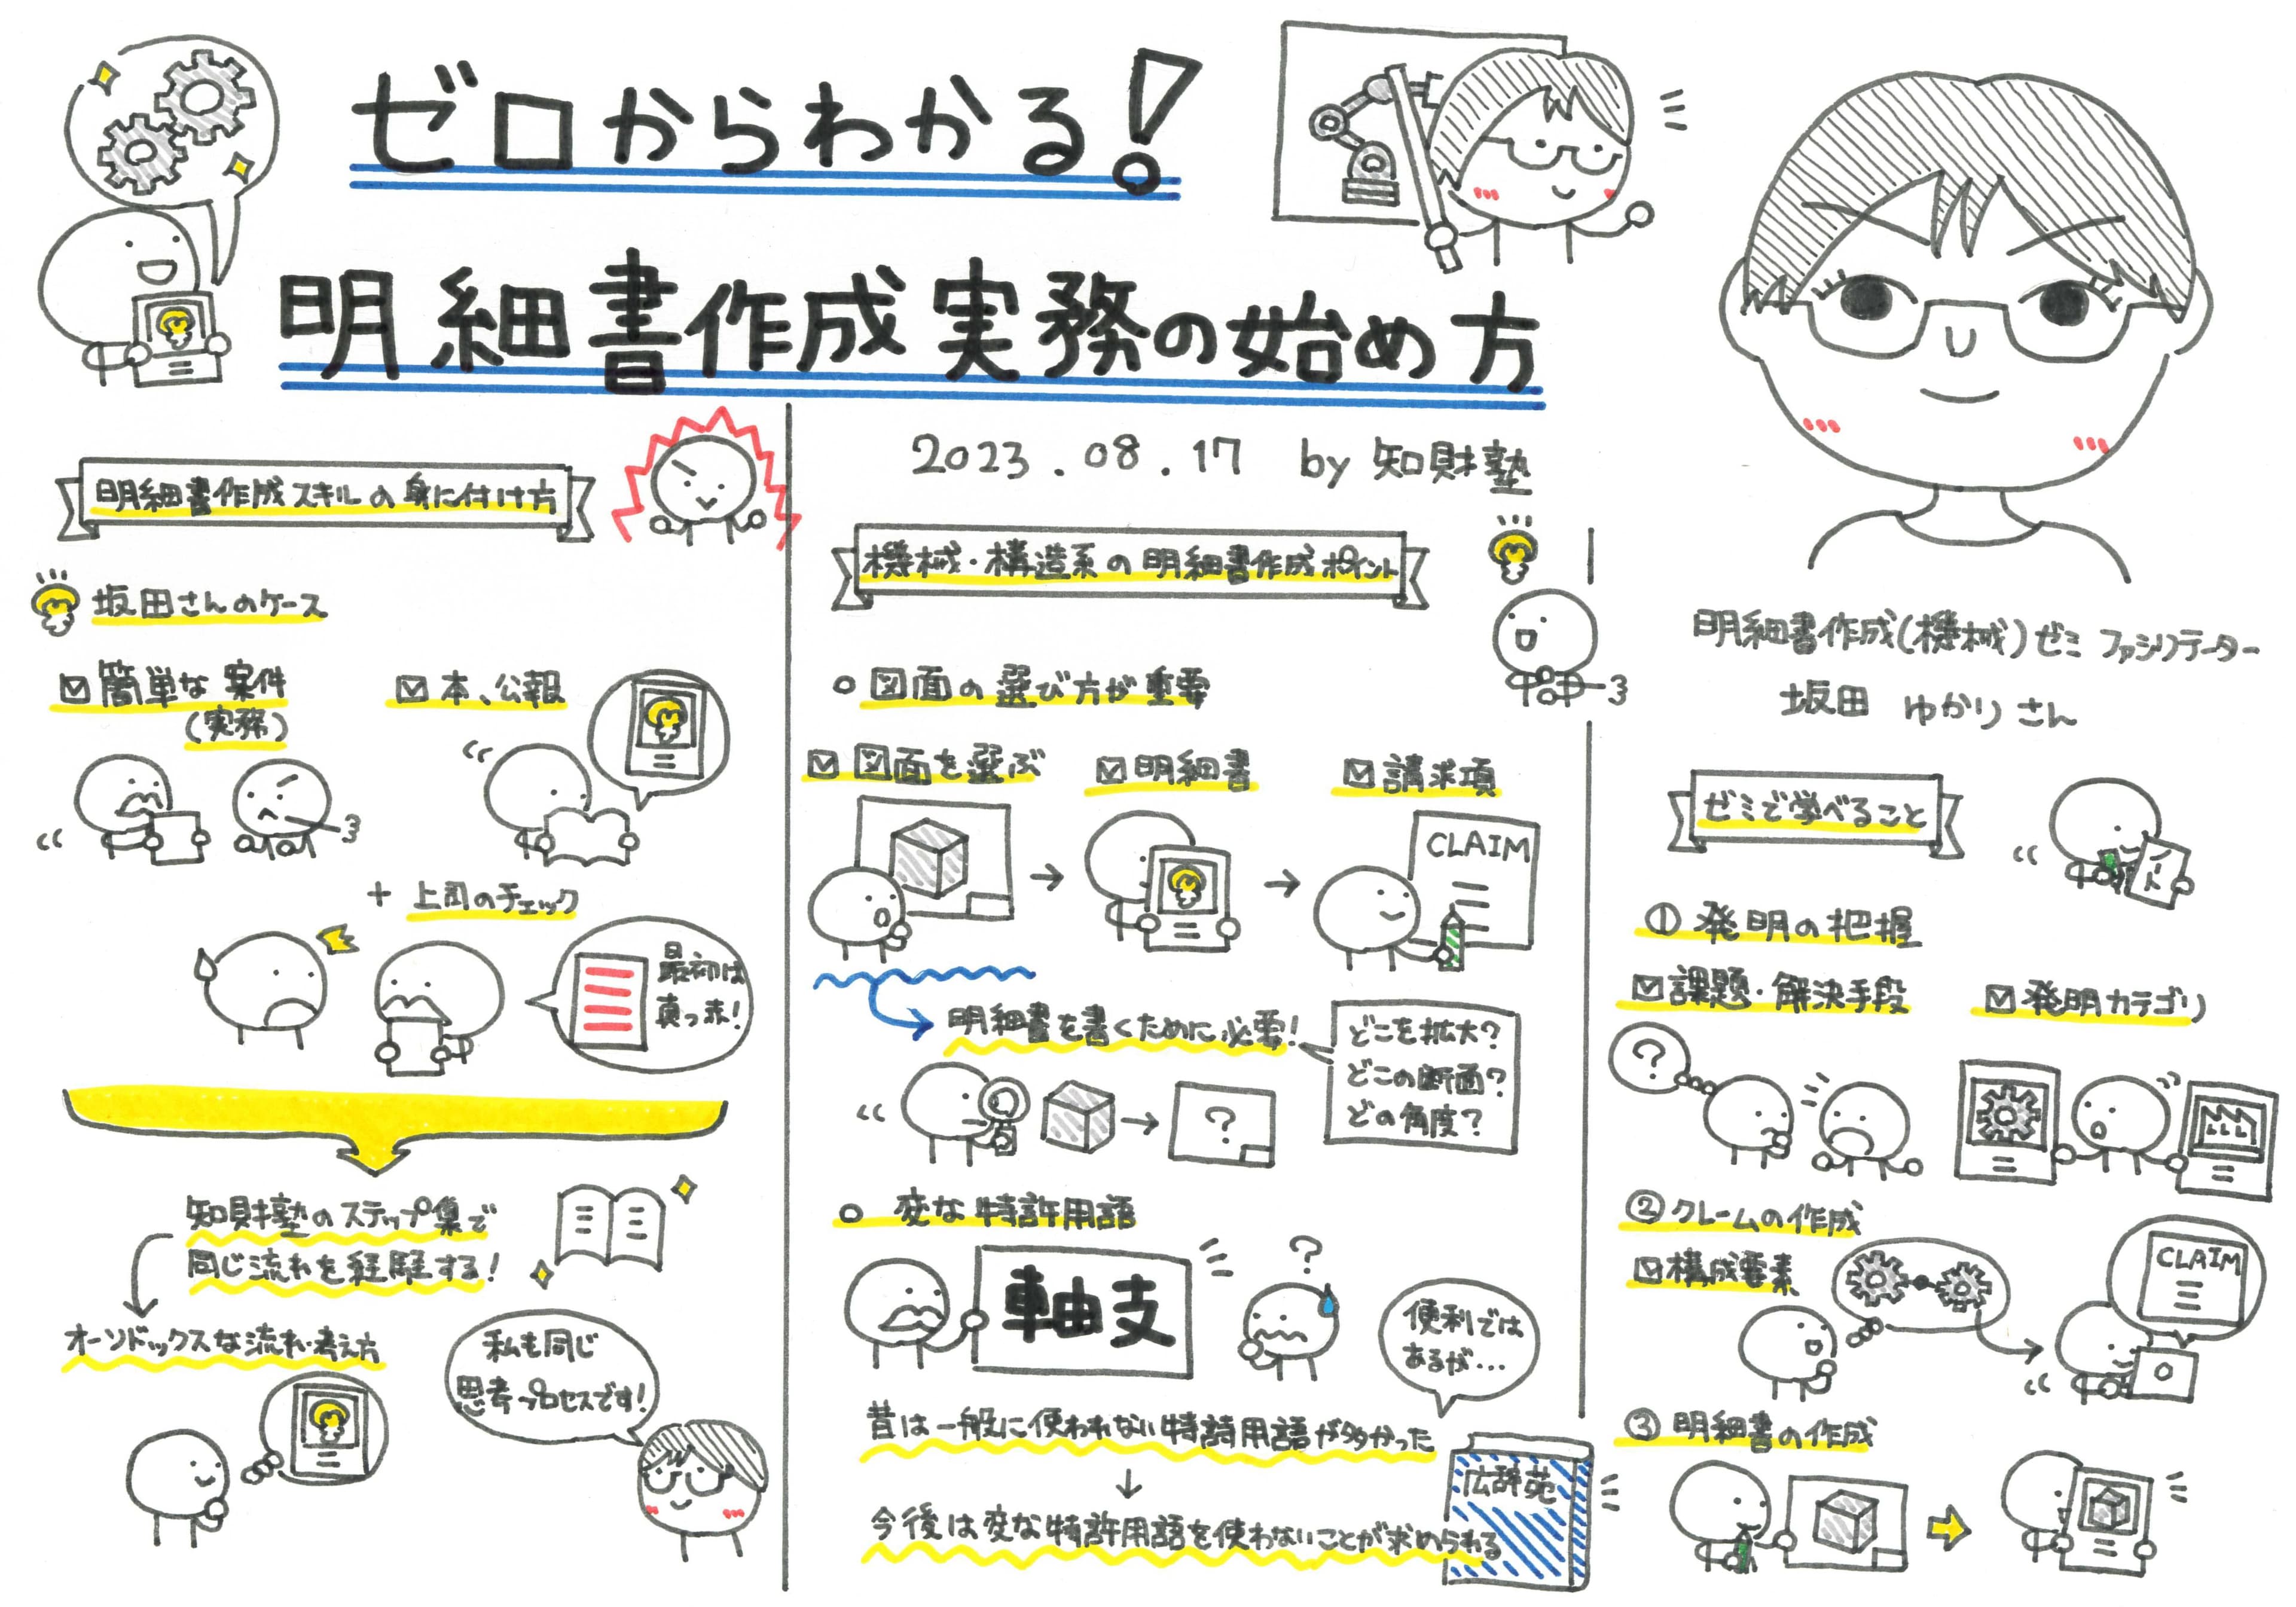 ゼロからわかる!
明細書作成実務の始め方
2023.08.17 by 知財塾
明細書作成(機械)ゼミ ファシリテーター
坂田 ゆかりさん
明細書作成スキルの身に付け方
坂田さんのケース
☑ 簡単な案件
(実務)
☑ 本、公報
+ 上司のチェック
最初は
真っ赤!
知財塾のステップ集で
同じ流れを経験する!
オーソドックスな流れ・考え方
私も同じ
思考プロセスです!
機械・構造系の明細書作成ポイント
○ 図面の選び方が重要
☑ 図面を選ぶ
☑ 明細書
☑ 請求項
CLAIM
→
→
明細書を書くために必要!
どこを拡大?
どこの断面?
どの角度?
→
?
○ 変な特許用語
軸支
?
便利では
あるが…
昔は一般に使われない特許用語が多かった
↓
今後は変な特許用語を使わないことが求められる
広辞苑
ゼミで学べること
ノート
① 発明の把握
☑ 課題・解決手段
☑ 発明カテゴリ
?
② クレームの作成
☑ 構成要素
CLAIM
③ 明細書の作成